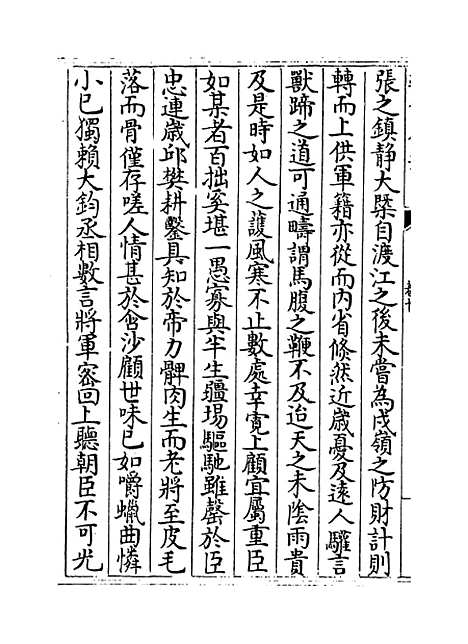 張之鎮静大槩自渡江之後未嘗為戍嶺之防財計則
轉而上供軍籍亦從而内省倐然近歳憂及逺人驩言
獸蹄之道可通疇謂馬腹之鞭不及迨天之未隂雨貴
及是時如人之護風寒不止數處幸寛上顧宜屬重臣
如某者百拙奚堪一愚寡與半生疆埸驅馳雖罄於臣
忠連歳邱樊耕鑿具知於帝力髀肉生而老將至皮毛
落而骨僅存嗟人情甚於含沙顧世味已如嚼蠟曲憐
小已獨賴大鈞丞相數言將軍宻回上聽朝臣不可光